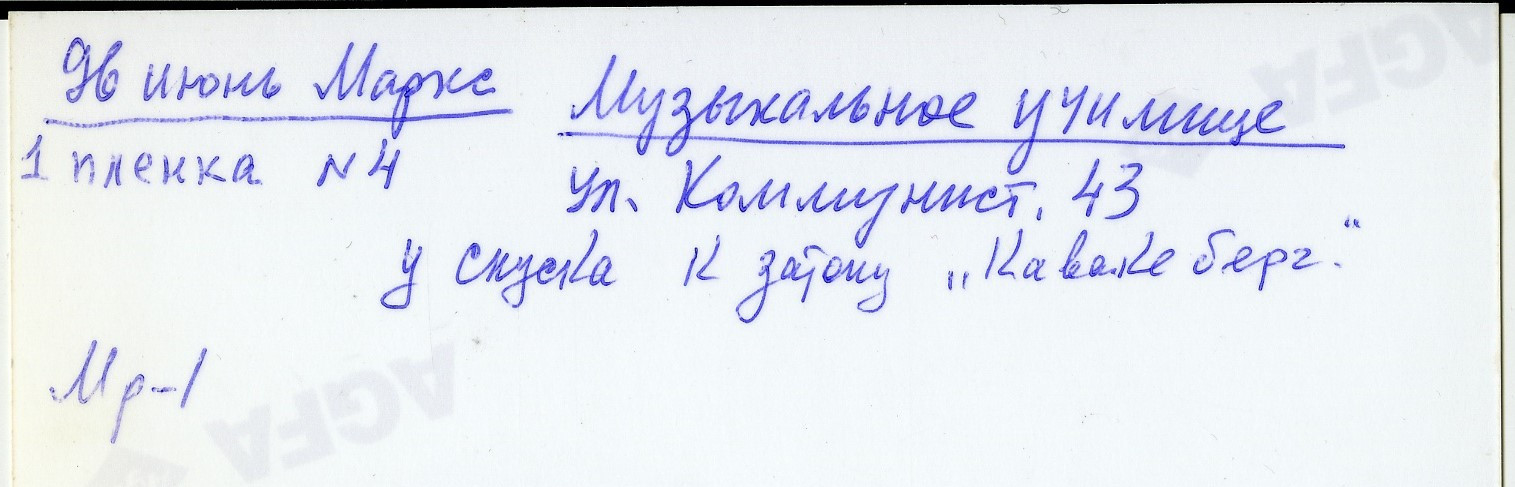 96 июнь Маркс Музыкальное училище
1 пленка N4 ул. Коммунист. 43
у спуска к затону „Кавакеберг."
Мр-1
AGFA
AGFA